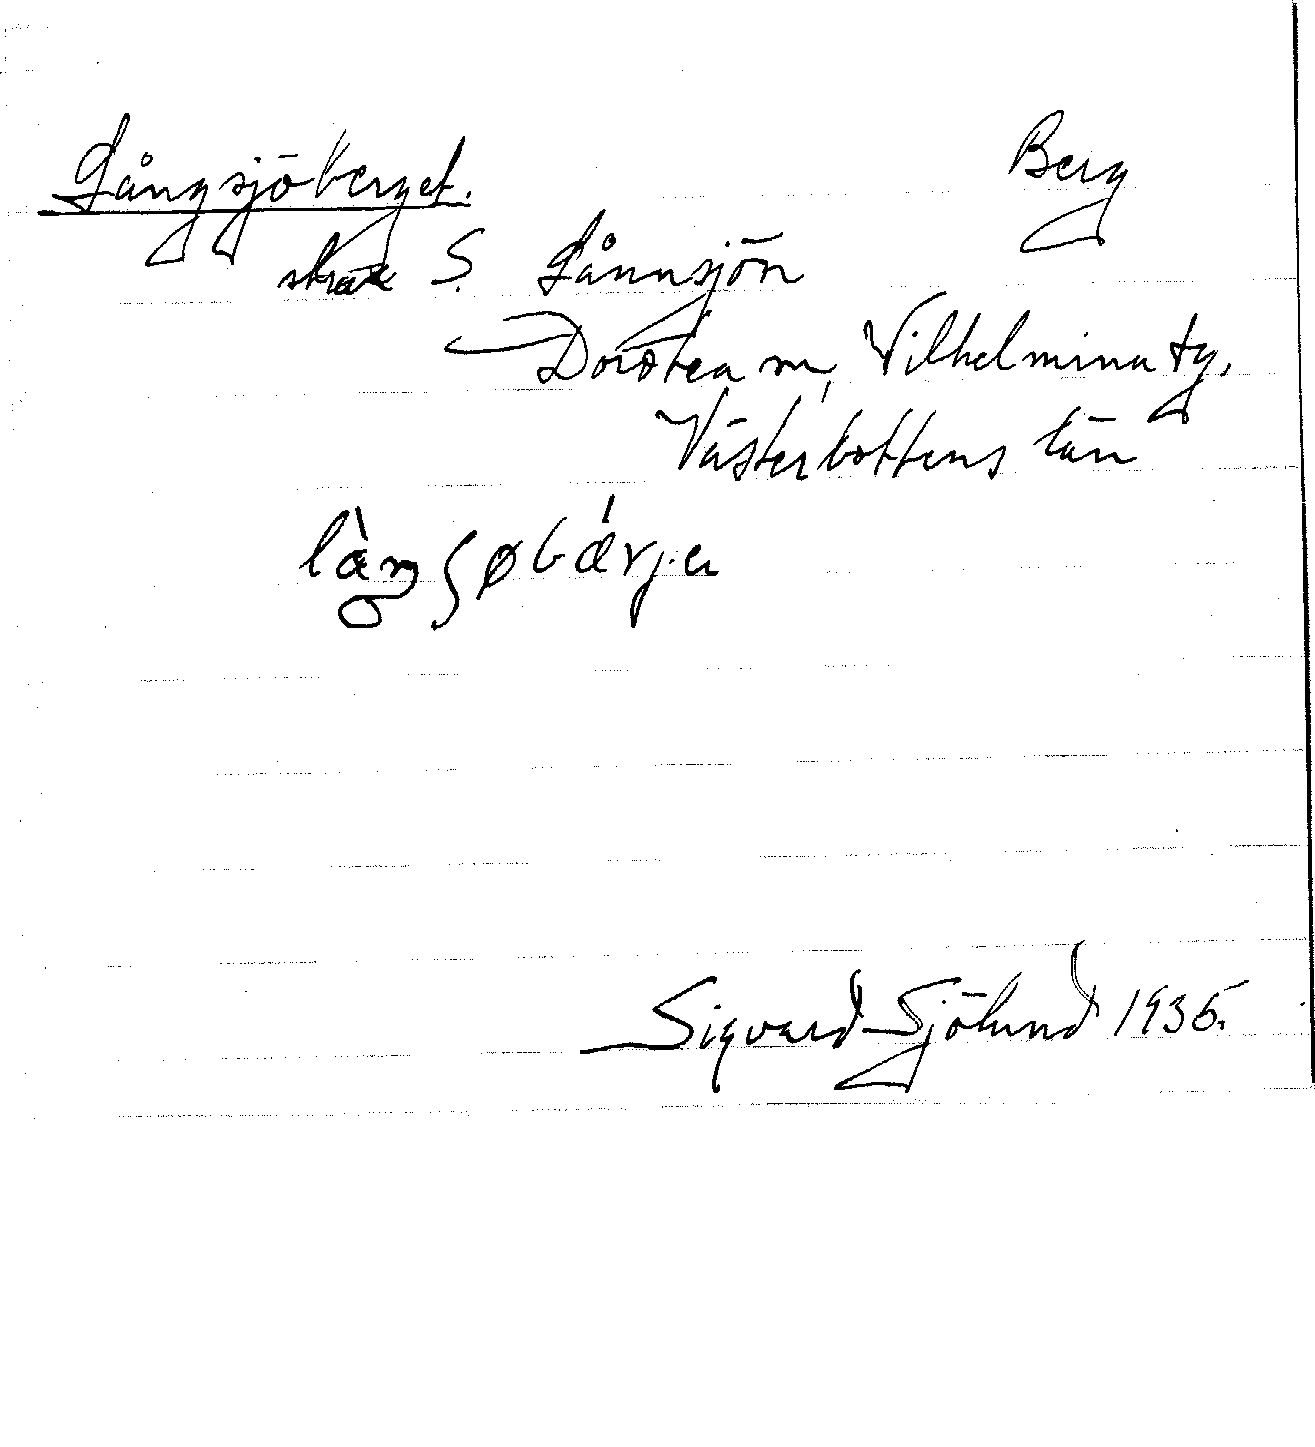 Långsjöberget. Berg
strax S. Lånnsjön
Dorotea sn, Vilhelmina tg.
Västerbottens län
Sigvard Sjölund 1935.